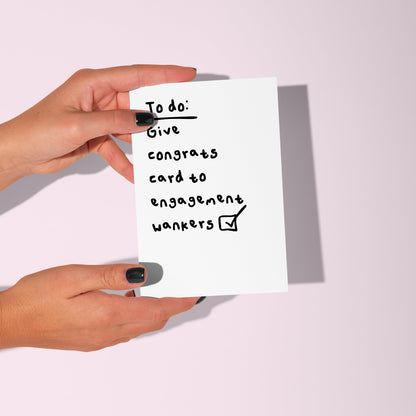 To do:
Give
congrats
card to
engagement
wankers